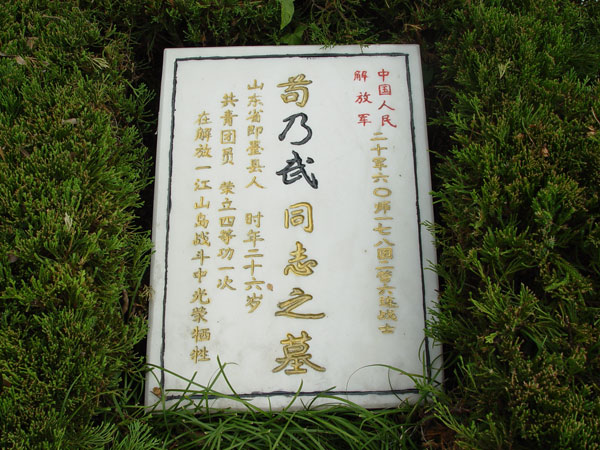 中国人民
解放军
二十军六〇师一七八团二营六连战士
苟乃武同志之墓
山东省即墨县人 时年二十六岁
共青团员 荣立四等功一次
在解放一江山岛战斗中光荣牺牲